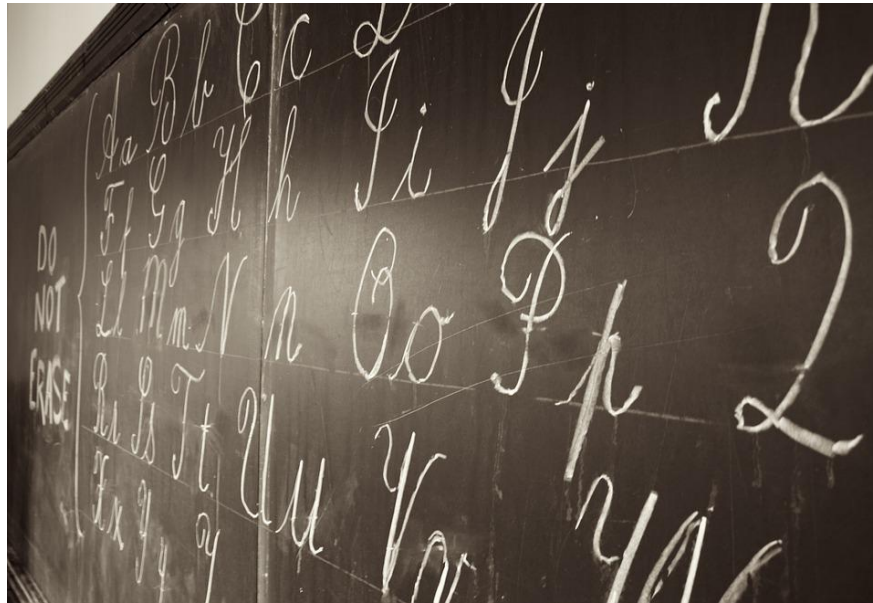 DO
NOT
ERASE
A a B b C c
F f G g H h I i J j
L l M m N n O o P p Q
R r S s T t U u V v
X x